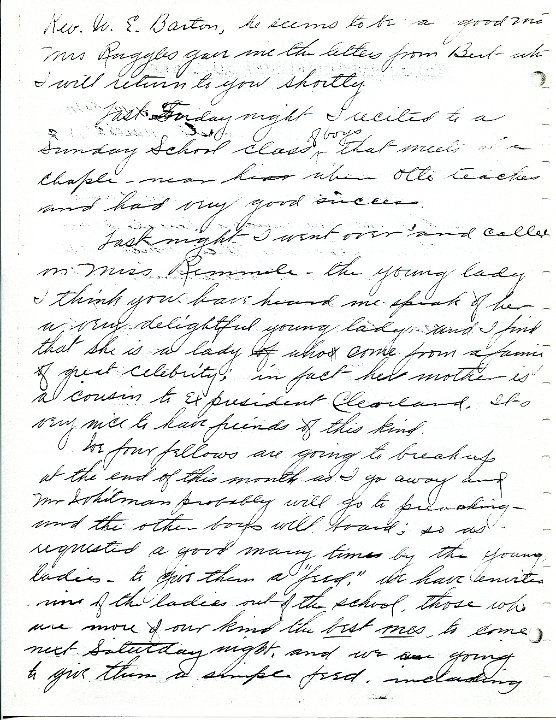 Rev. W. E. Barton, he seems to be a good
Mrs Ruggles gave me the letters from Bert
I will return to you shortly
Last Friday night I recited to a
Sunday School class of boys that meets at a
chaple - near here where Otto teaches
and had very good success.
Last night I went over and called
on Miss - the young lady
I think you have heard me speak of her
a very delightful young lady. and I find
that she is a lady who come from a
of great celebrity; in fact her mother is
a cousin to Ex president Cleveland. Its
very nice to have friends of this kind.
We four fellows are going to break up
at the end of this month as I go away and
Mr Whitman probably will go to preaching -
and the other boys will board; so as
requested a good many times by the young
ladies - to give them a "feed," we have
nine of the ladies out of the school, those who
are more of our kind the best ones, to come
next Saturday night. and we are going
to give them a simple feed. including